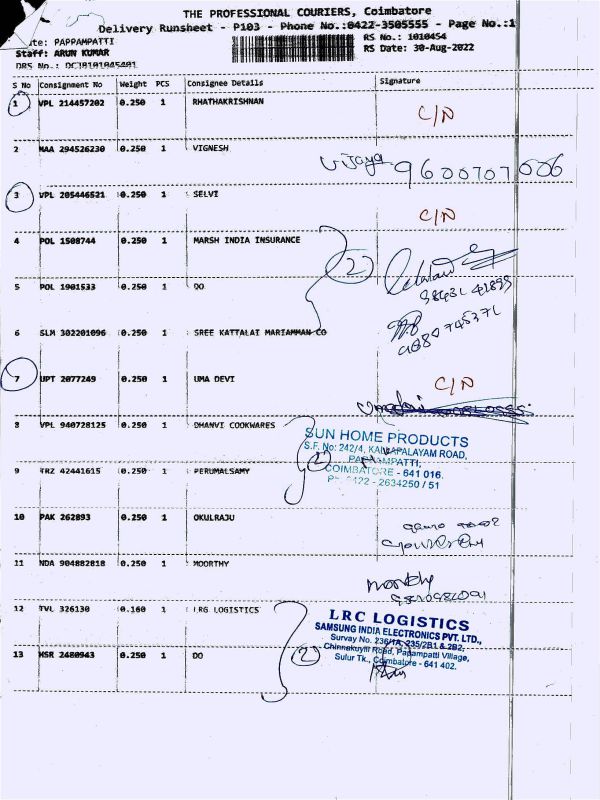 THE PROFESSIONAL COURIERS, Coimbatore
Delivery Runsheet - P103 - Phone No.:0422-3505555 - Page No.:1
PAPPAMPATTI RS No.: 1010454
Staff: ARUN KUMAR RS Date: 30-Aug-2022
DRS No.:
S No Consignment No Weight PCS Consignee Details Signature
1 VPL 214457202 0.250 1 RHATHAKRISHNAN C/N
2 MAA 294526230 0.250 1 VIGNESH
Vijaya 9600707006
3 VPL 205446521 0.250 1 SELVI C/N
4 POL 1508744 0.250 1 MARSH INDIA INSURANCE
2
5 POL 1901533 0.250 1 DO
6 SLM 302201096 0.250 1 SREE KATTALAI MARIAMMAN CO
7 UPT 2077249 0.250 1 UMA DEVI C/N
8 VPL 940728125 0.250 1 DHANVI COOKWARES
SUN HOME PRODUCTS
S.F. No: 242/4, ROAD,
COIMBATORE - 641 016.
2634250 / 51
2
9 TRZ 42441615 0.250 1 PERUMALSAMY
10 PAK 262893 0.250 1 OKULRAJU
11 NDA 904882818 0.250 1 MOORTHY
Moorthy
12 TVL 326130 0.160 1 LRG LOGISTICS
LRC LOGISTICS
SAMSUNG INDIA ELECTRONICS PVT. LTD.,
Survay No. 236/1A, 235/2B1 & 2B2,
Chinnakuyili Road, Papampatti Village,
Sulur Tk., Coimbatore - 641 402.
2
13 MSR 2480943 0.250 1 DO